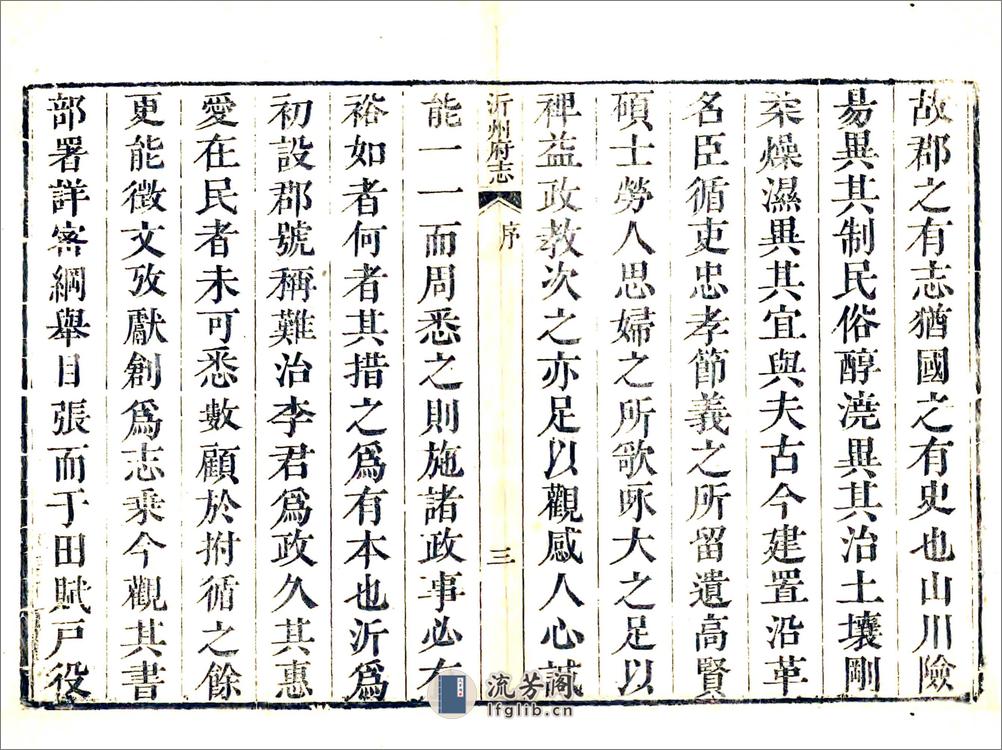 故郡之有志猶國之有史也山川險
昜異其制民俗醇澆異其治土壤剛
柔燥濕異其宜與夫古今建置沿革
名臣循吏忠孝節義之所留遺高賢
碩士勞人思婦之所歌咏大之足以
裨益政教次之亦足以觀感人心誠
沂州府志
序
三
能一一而周悉之則施諸政事必有
裕如者何者其措之爲有本也沂爲
初設郡號稱難治李君爲政久其惠
愛在民者未可悉數顧於拊循之餘
更能徵文攷獻創爲志乘今觀其書
部署詳密綱舉目張而于田賦戸役
流芳阁
lfglib.cn